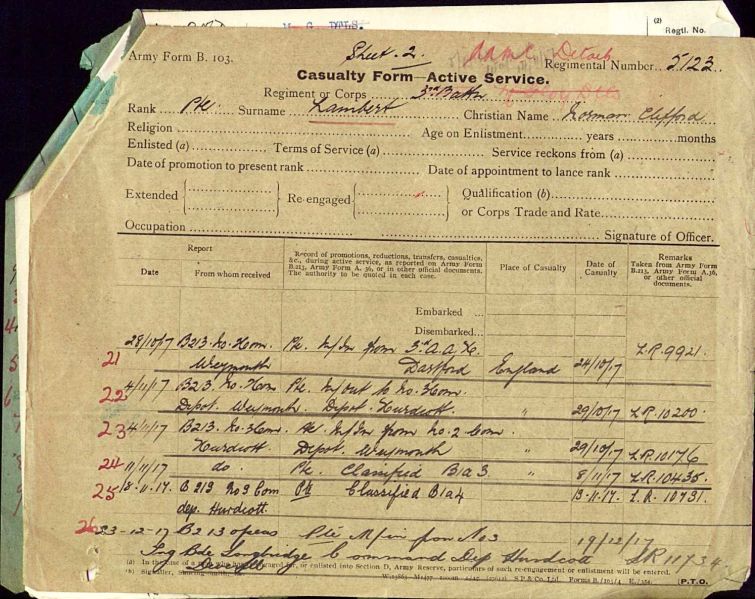 M. G. DTLS.
(2)
Regtl. No.
Army Form B. 103.
Sheet. 2.
A.A.M.C. Details
Regimental Number.. 5123
Casualty Form—Active Service.
Regiment or Corps 3rd Battn
Rank Pte. Surname Lambert Christian Name Norman Clifford
Religion Age on Enlistment years months
Enlisted (a) Terms of Service (a) Service reckons from (a)
Date of promotion to present rank Date of appointment to lance rank
Extended Re-engaged Qualification (b)
or Corps Trade and Rate
Occupation Signature of Officer.
Report
Date From whom received
Record of promotions, reductions, transfers, casualties,
&c., during active service, as reported on Army Form
B.213, Army Form A. 36, or in other official documents.
The authority to be quoted in each case.
Place of Casualty
Date of
Casualty
Remarks
Taken from Army Form
B.213, Army Form A.36,
or other official
documents.
Embarked ...
Disembarked...
21 28/10/17 B213. No. 2 Com. Pte. M/In from 3rd A.A.H. L.R. 9921.
Weymouth Dartford England 24/10/17
22 4/11/17 B213. No. 2 Com Pte. M/out to No. 3 Com.
Depot. Weymouth. Depot. Hurdcott. " 29/10/17 L.R. 10200.
23 4/11/17 B213. No. 3 Com. Pte. M/In from No. 2 Com.
Hurdcott. Depot. Weymouth " 29/10/17 L.R. 10176
24 11/11/17 do. Pte. Classified B1a3. " 8/11/17 L.R. 10435.
25 18.11.17. B213 No 3 Com Pte Classified B1a4 13.11.17. L.R. 10731.
dep. Hurdcott
26 23-12-17 B213 Pte M/in from No 3 19/12/17
Trg Bde Longbridge Command Dep Hurdcott LR 11734
Deverill
(a) In the case of a man who has re-engaged for, or enlisted into Section D, Army Reserve, particulars of such re-engagement or enlistment will be entered.
(b) Signaller, Shoeing-Smith,
S.P. & Co. Ltd. Forms B./103/4
[P.T.O.